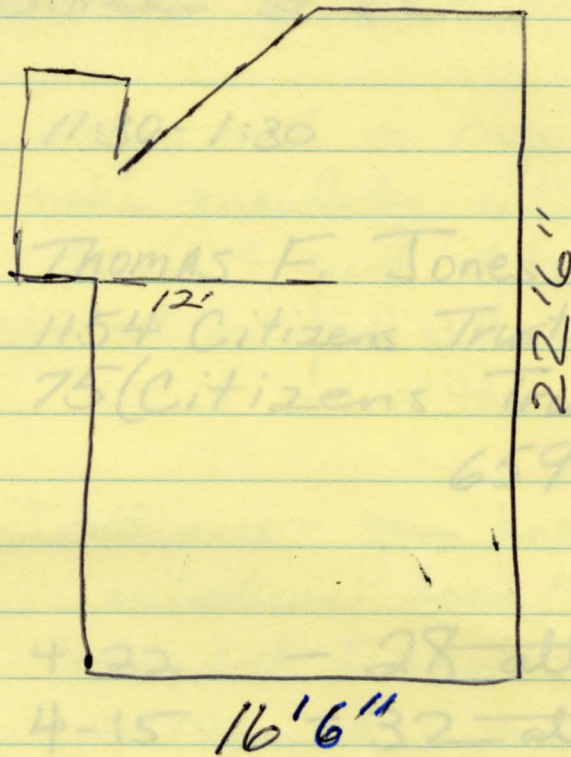 11:30-1:30
Thomas F. Jones
12'
1154 Citizens Trust
75(Citizens
22'6"
659
4-22 - 28
4-15 32
16'6"